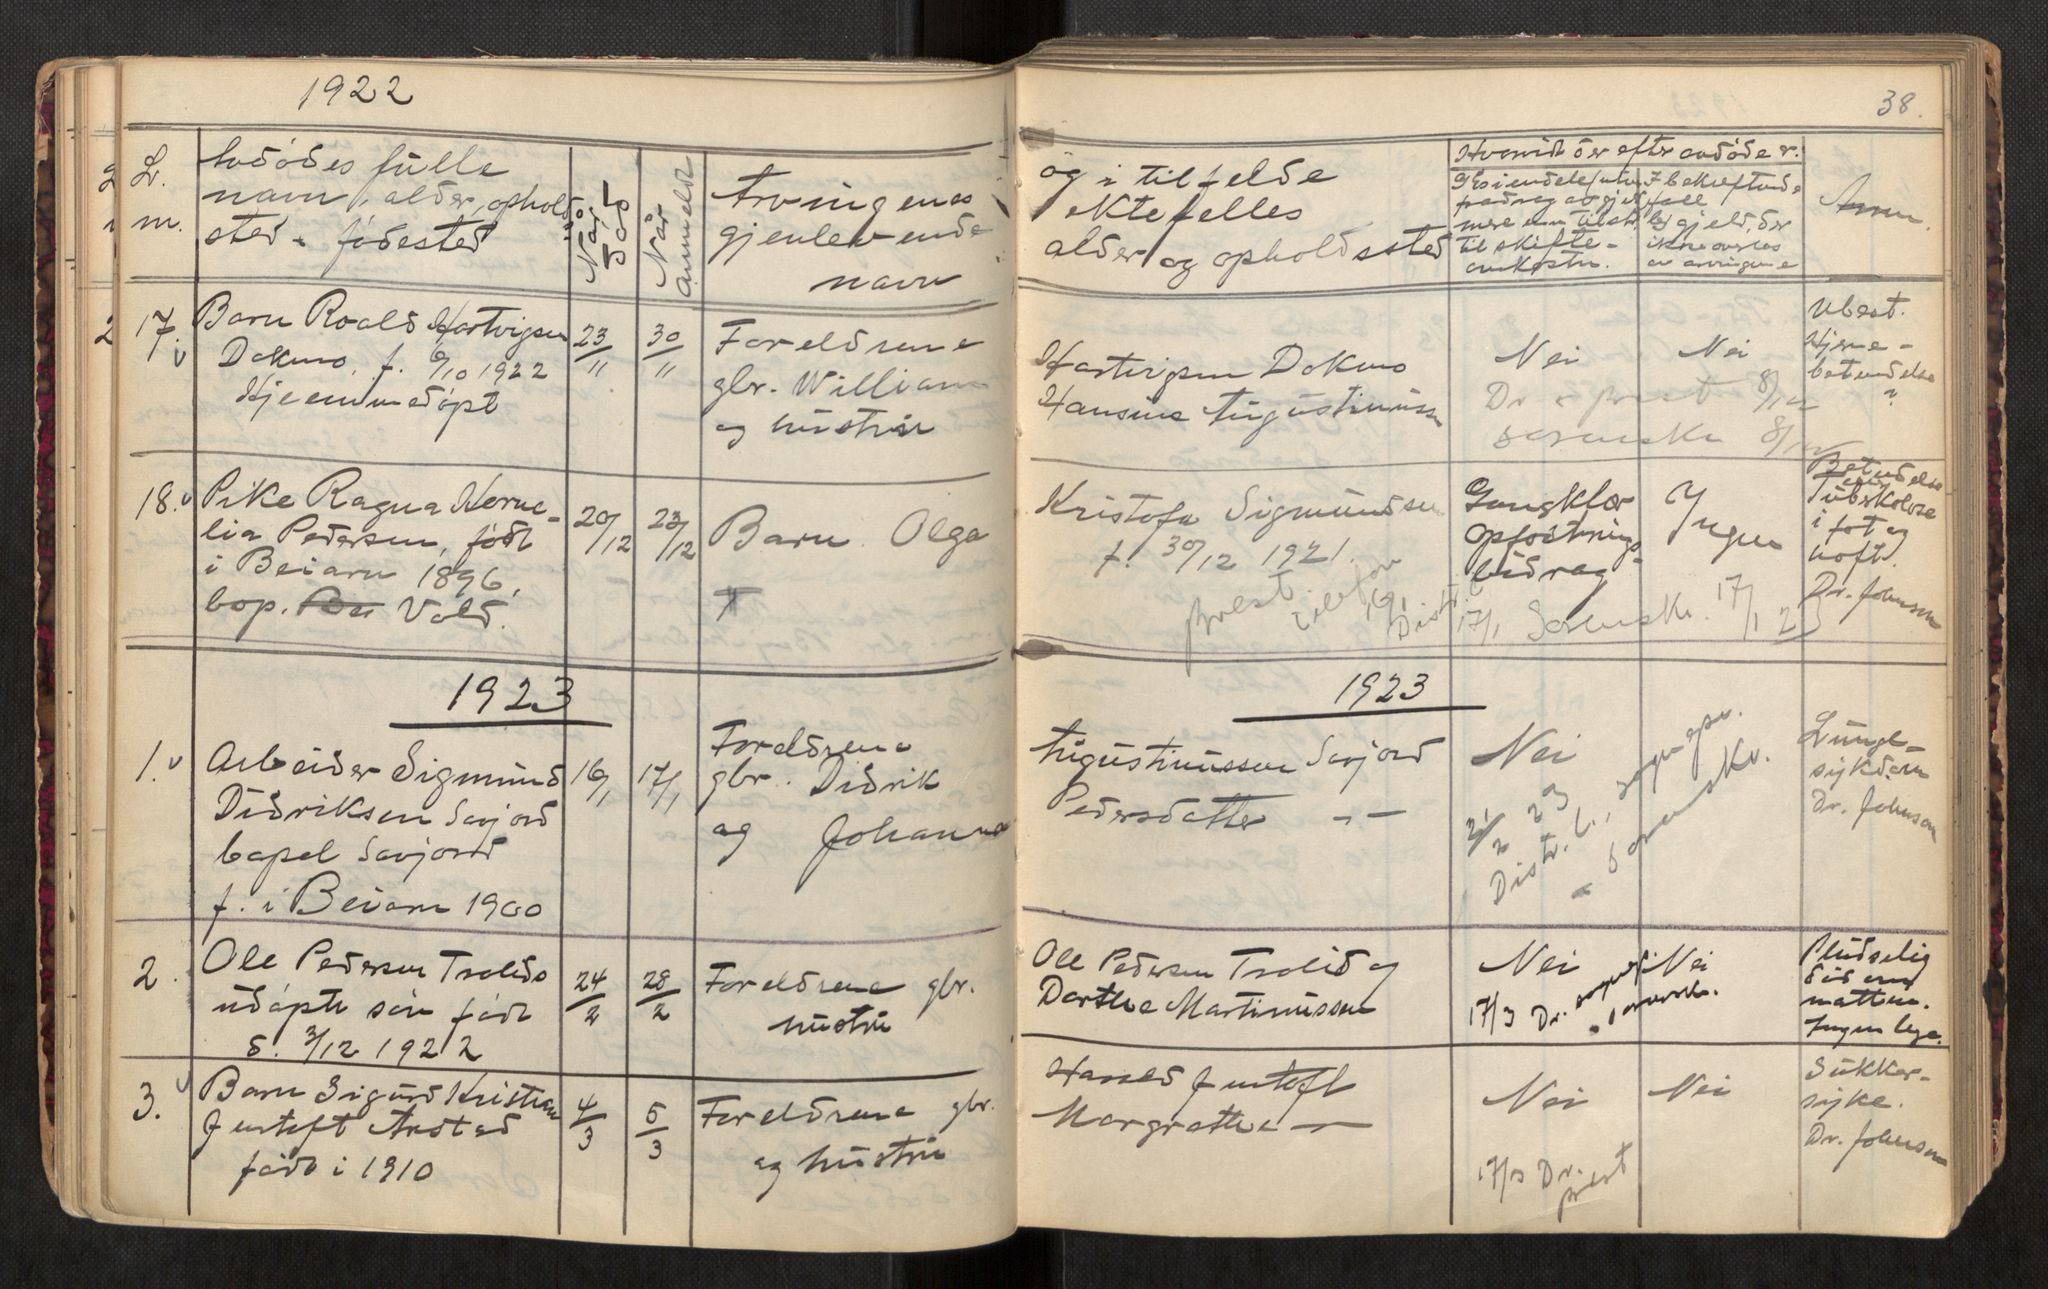 1922
Lr. Avdødes fulle
navn, alder, ophold
m. sted & fødested
Når
død
Når
anmeldt
Arvingenes
gjenlevende
navn
17. Barn Roald Hartvigsen
Dokmo, f. 6/10 1922
Hjemmedøpt
23/11
30/11
Foreldrene
gbr. William
og hustru
18. Pike Ragna Korne-
lia Pedersen, født
i Beiarn 1896,
bop. Vold.
20/12
23/12
Barn Olga
1923
1. Arbeider Sigmund
Didriksen Savjord
bopel Savjord
f. i Beiarn 1900
16/1
17/1
Foreldrene
gbr. Didrik
og Johanna
2. Ole Pedersen Trolids
udøpte søn født
d. 3/12 1922
24/2
28/2
Foreldrene gbr.
hustru
3. Barn Sigurd Kristian
Jentoft Arstad
født i 1910
4/3
5/3
Foreldrene gbr.
og hustru
38.
og i tilfelde
ektefelles
alder og opholdssted
Hvorvidt der efter avdøde er:
mere enn tilstr.
til skifte-
omkostn.
gjeld, der
ikke overtas
av arvingene
Anm.
Hartvigsen Dokmo
Hansine Augustinussen
Nei
Nei
Dr & prest 8/12
sorenskr 8/12
Ubest.
Hjerne-
betendelse
?
Kristofa Sigmundsen
f. 30/12 1921.
prest telefon
16/1
Distr. l.
17/1 Sorenskr. 17/1 23
Gangklær
opfostrings-
bidrag
Ingen
Betendelse
Tuberkolose
i fot og
hoft.
Dr. Johnson
1923
Augustinussen Savjord
Pedersdatter - -
Nei
2/2 23
Distr. l., sogнepr.
& sorenskr.
Lunge-
sykdom
Dr. Johnson
Ole Pedersen Trolid og
Dorthea Martinussen
Nei
Nei
17/3 Dr. sognepr.
& sorenskr.
Pludselig
død om
natten.
Ingen lege.
Harald Jentoft
Margrethe -
Nei
Nei
17/3 Dr.
prest
Sukker-
syke.
Dr. Johnson